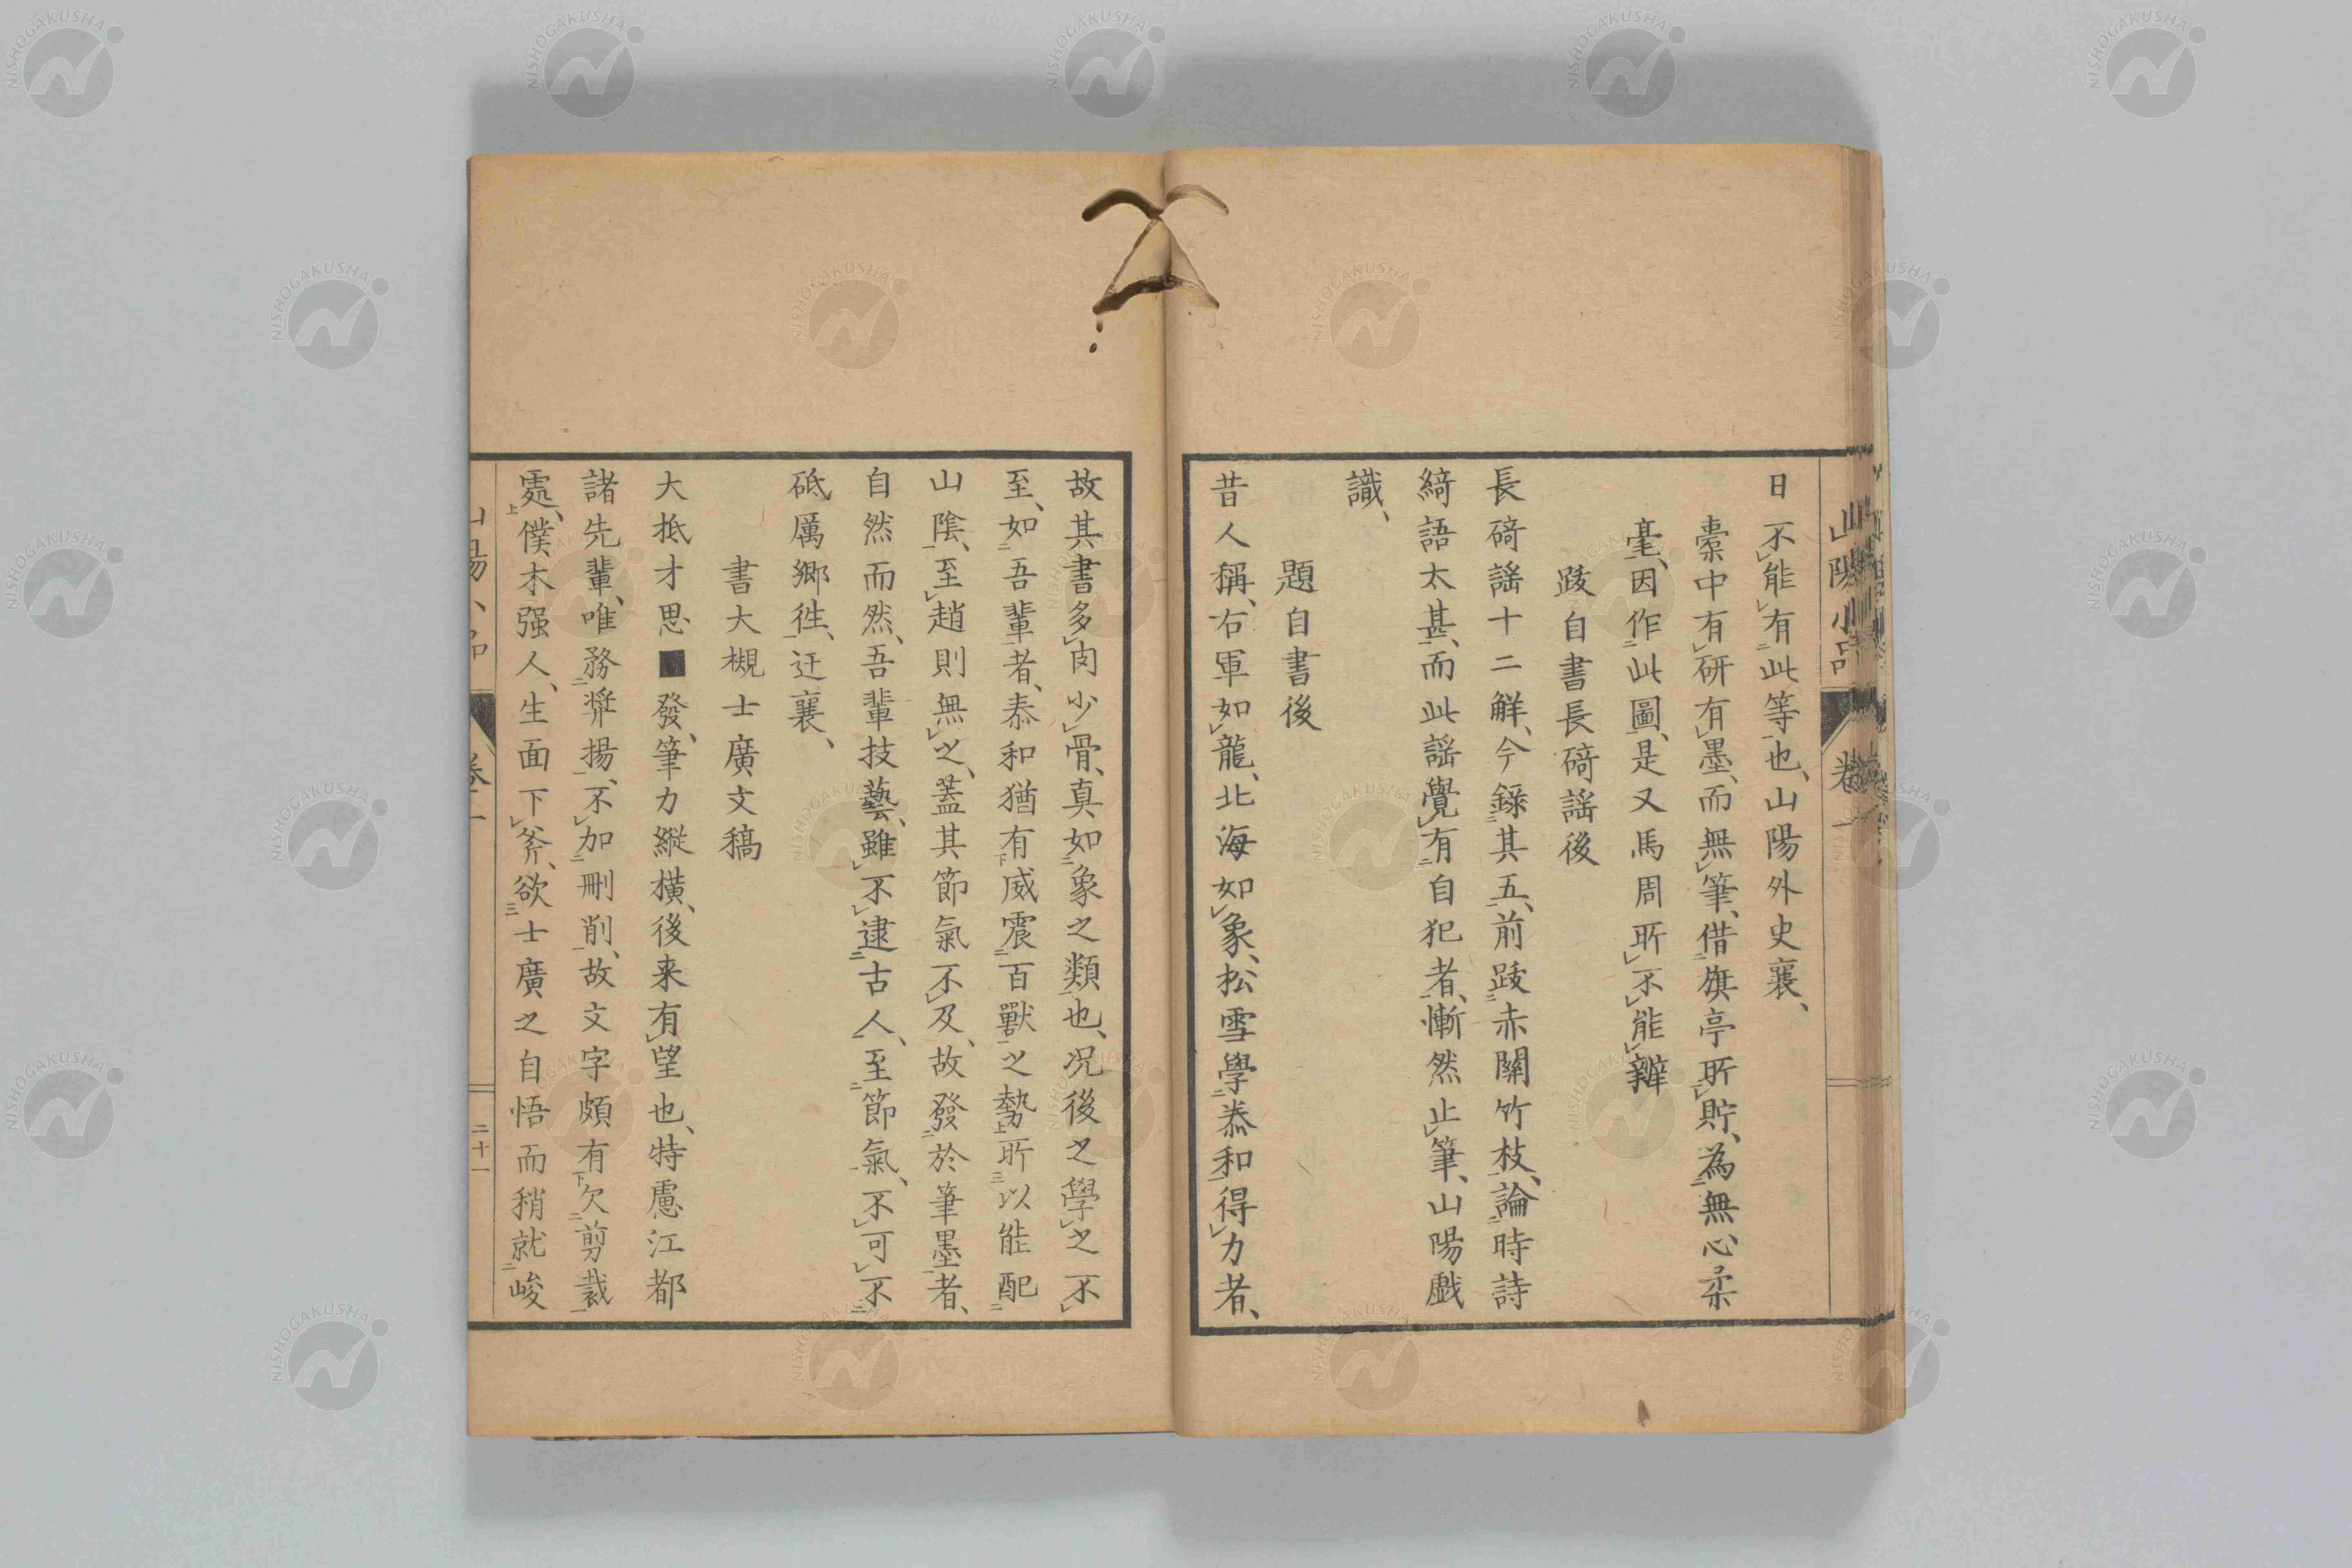 山陽小品 卷
日不能有此等也、山陽外史襄、
橐中有研有墨、而無筆、借旗亭所貯、為無心柔
毫、因作此圖、是又馬周所不能辦
跋自書長碕謡後
長碕謡十二解、今錄其五、前跋赤關竹枝、論時詩
綺語太甚、而此謡覺有自犯者、慚然止筆、山陽戲
識、
題自書後
昔人稱、右軍如龍、北海如象、松雪學泰和得力者、
故其書多肉少骨、真如象之類也、况後之學之不
至、如吾輩者、泰和猶有威震百獸之勢所以能配
山陰、至趙則無之、蓋其節氣不及、故發於筆墨者、
自然而然、吾輩技藝、雖不逮古人、至節氣、不可不
砥厲鄉徃、迂襄、
書大槻士廣文稿
大抵才思■發、筆力縱橫、後来有望也、特慮江都
諸先輩、唯務奨揚、不加刪削、故文字頗有欠剪裁
處、僕木强人、生面下斧、欲士廣之自悟而稍就峻
山陽小品 卷二十一
NISHOGAKUSHA